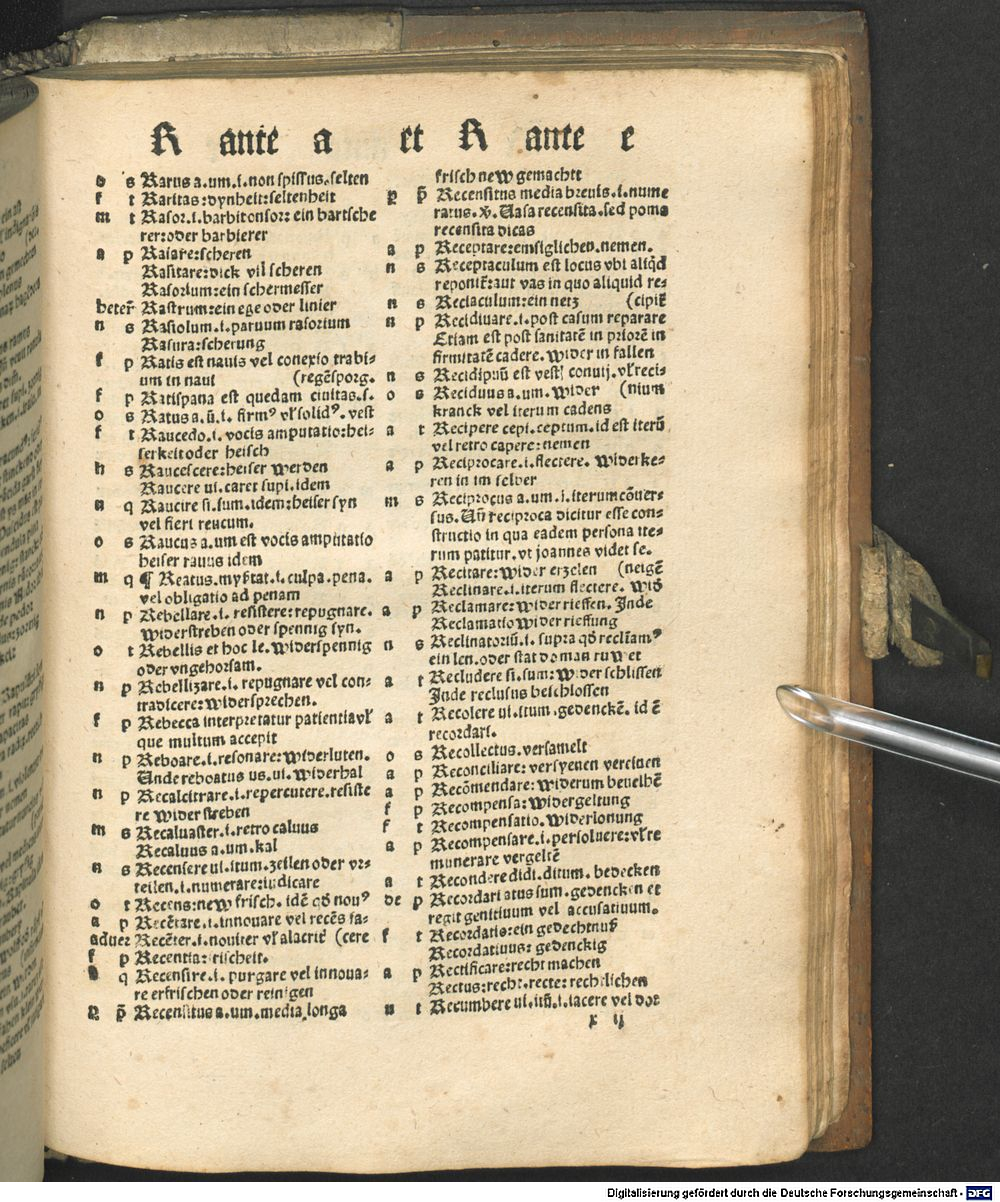 R ante a et R ante e
o s Rarus a.um.i.non spissus.selten
f t Raritas:dynheit:seltenheit
m t Rasor.i.barbitonsor: ein bartsche
rer:oder barbierer
a p Rasare:scheren
Rasitare:dick vil scheren
Rasorium:ein schermesser
heter̄ Rastrum:ein ege oder linier
n s Rasiolum.i.paruum rasorium
Rasura:scherung
f p Ratis est nauis vel conexio trabi-
um in naui (regēsporg.
f p Ratispana est quedam ciuitas.s.
o s Ratus a.ū.i. firmꝰ vł solidꝰ. vest
f t Raucedo.i.vocis amputatio:hei-
serkeit oder heisch
h s Raucescere:heiser werden
Raucere ui.caret supi.idem
n q Raucire si.sum.idem:heiser syn
vel fieri reucum.
o s Raucus a.um est vocis amputatio
heiser rauus idem
m q ¶ Reatus. .i.culpa.pena.
vel obligatio ad penam
n p Rebellare.i. resistere:repugnare.
widerstreben oder spennig syn.
o t Rebellis et hoc le.widerspennig
oder vngehorsam.
n p Rebellizare.i. repugnare vel con-
tradicere:widersprechen.
f p Rebecca interpretatur patientia vł
que multum accepit
n p Reboare.i.resonare:widerluten.
Unde reboatus us.ui.widerhal
n p Recalcitrare.i.repercutere.resiste
re wider streben
m s Recaluaster.i.retro caluus
Recaluus a.um.kal
a s Recensere ui.itum.zeilen oder vr-
teilen.i.numerare:iudicare
o t Recens:new frisch.idē qd̄ nouꝰ
a p Recētare.i.innouare vel recēs fa-
aduer Recēter.i.nouiter vł alacrit̄ (cere
f p Recentia: rischeit.
q Recensire.i. purgare vel innoua-
re erfrischen oder reinigen
p̄ Recensitus a.um.media longa
frisch new gemachtt
p p̄ Recensitus media breuis.i.nume
ratus. Uasa recensita.sed poma
recensita dicas
a p Receptare:emsiglichen.nemen.
n s Receptaculum est locus vbi aliqd̄
reponit̄:aut vas in quo aliquid re-
n s Reciaculum:ein netz (cipit̄
n p Recidiuare.i.post casum reparare
Etiam est post sanitatē in priorē in
firmitatē cadere.wider in fallen
n s est conuij.vł reci-
o s Reciduus a.um.wider (nium
kranck vel iterum cadens
a t Recipere cepi.ceptum.id est iterū
vel retro capere:nemen
a p Reciprocare.i.flectere. widerke-
ren in im selber
m s Reciprocus a.um.i.iterum cōuer-
sus.Uñ reciproca dicitur esse con-
structio in qua eadem persona ite-
rum patitur.vt joannes videt se.
a p Recitare:wider erzelen (neigē
Reclinare.i.iterum flectere. wid̄
a p Reclamare:wider rieffen. Inde
Reclamatio wider rieffung
n s Reclinatoriū.i. supra qd̄ reclinamꝰ
ein len.oder stat do man ruwet
a t Recludere si.sum:wider schlissen
Inde reclusus beschlossen
a t Recolere ui.itum.gedenckē. id ē
recordari.
o s Recollectus.versamelt
a p Reconciliare: versyenen vereinen
a p Recōmendare:widerum beuelhē
f p Recompensa:widergeltung
f t Recompensatio.widerlonung
a p Recompensare.i.persoluere:vł re
munerare vergeltē
a t Recondere didi.ditum. bedecken
de p Recordari atus sum.gedencken et
regit genitiuum vel accusatiuum.
f t Recordatio:ein gedechtnuß
Recordatiuus: gedenckig
a p Rectificare:recht machen
Rectus:recht.recte:rechtlichen
n t Recumbere ui.itū.i.iacere vel dor
x ij
Digitalisierung gefördert durch die Deutsche Forschungsgemeinschaft - DFG